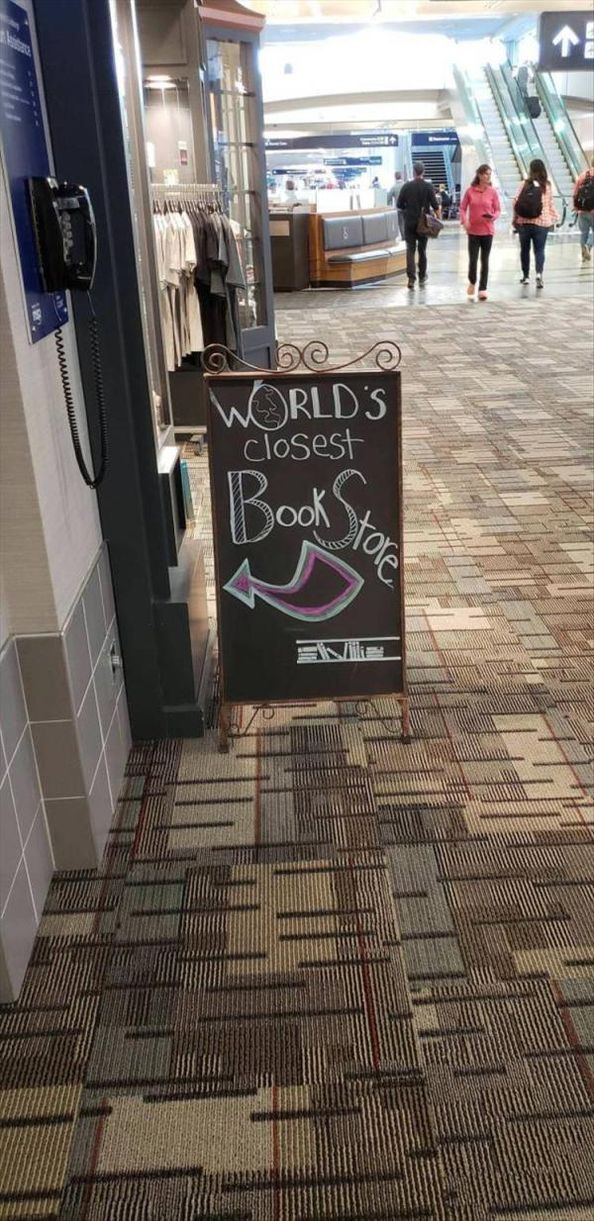 Assistance
WORLD'S
closest
Book Store